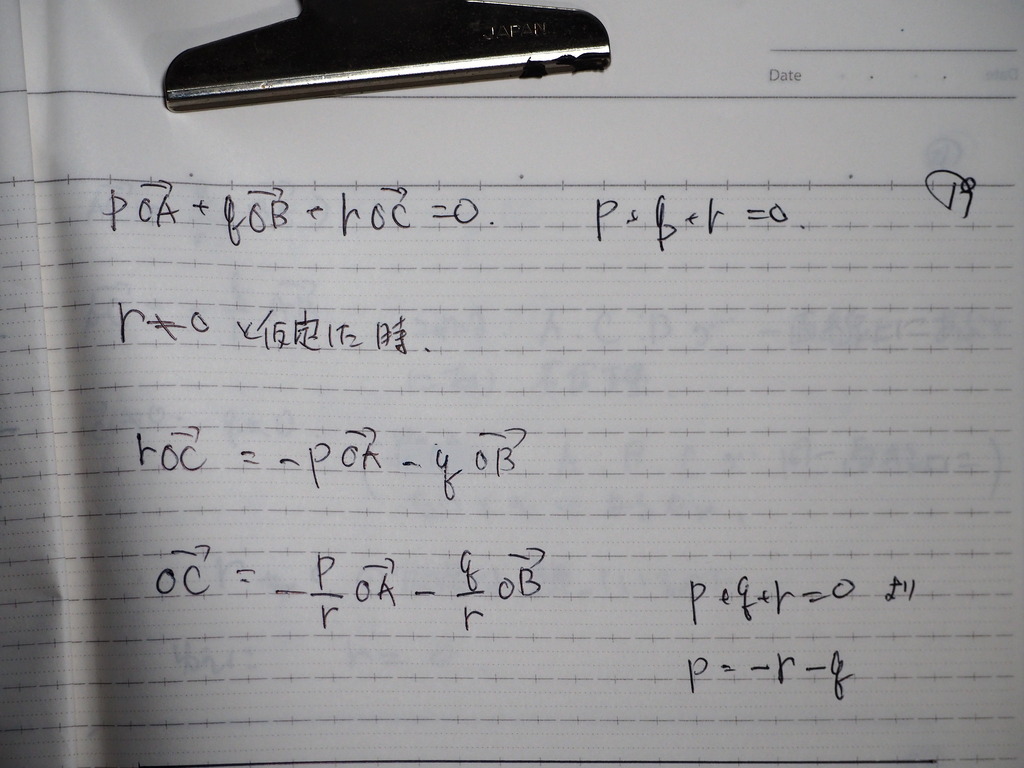 JAPAN
Date
pOA→ + qOB→ + rOC→ = 0. p + q + r = 0.
r ≠ 0 と仮定した時.
rOC→ = -pOA→ - qOB→
OC→ = -p/r OA→ - q/r OB→
p + q + r = 0 より
p = -r - q